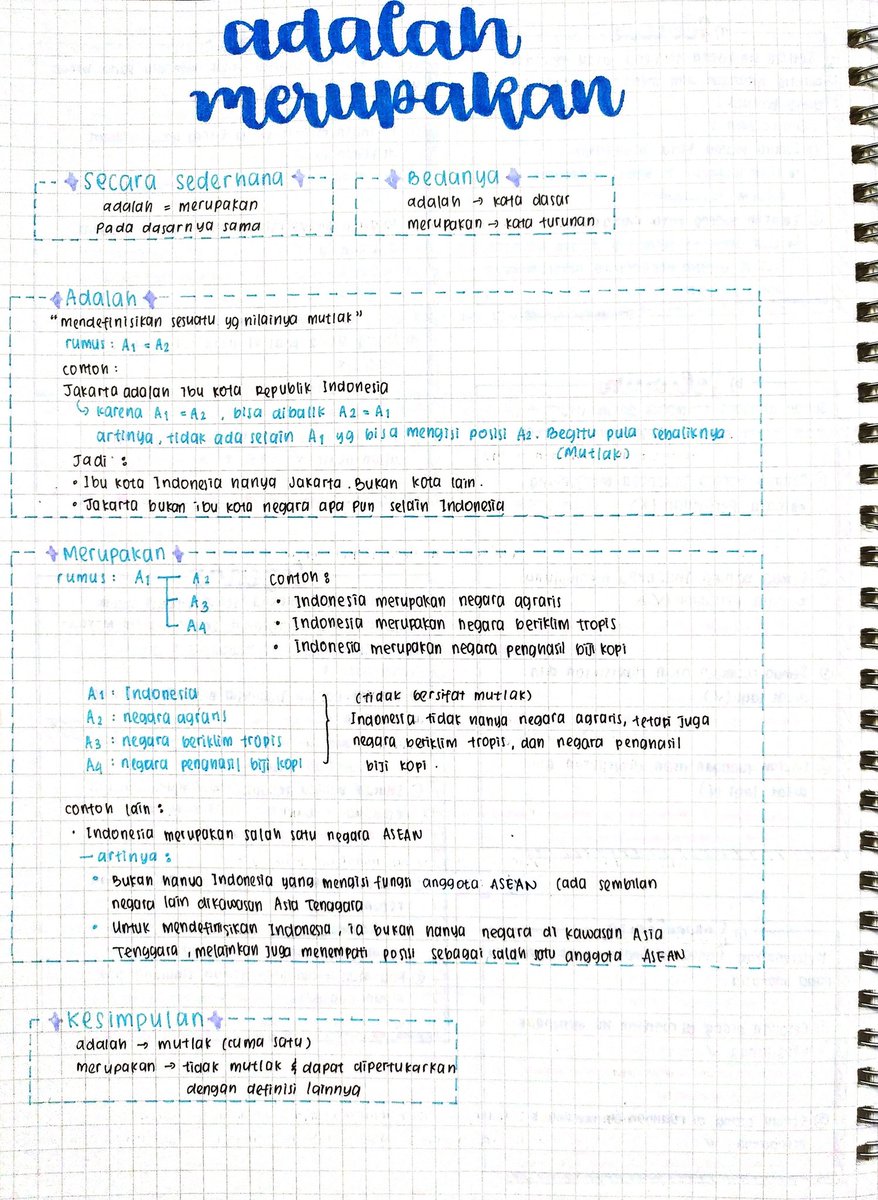 adalah
merupakan
Secara sederhana
adalah = merupakan
Pada dasarnya sama
Bedanya
adalah → kata dasar
merupakan → kata turunan
Adalah
"mendefinisikan sesuatu yg nilainya mutlak"
rumus: A1 = A2
contoh:
Jakarta adalah ibu kota Republik Indonesia
↳ karena A1 = A2, bisa dibalik A2 = A1
artinya, tidak ada selain A1 yg bisa mengisi posisi A2. Begitu pula sebaliknya.
(Mutlak).
Jadi:
• Ibu kota Indonesia hanya Jakarta. Bukan kota lain.
• Jakarta bukan ibu kota negara apa pun selain Indonesia
Merupakan
rumus: A1 A2
A3
A4
contoh:
• Indonesia merupakan negara agraris
• Indonesia merupakan negara beriklim tropis
• Indonesia merupakan negara penghasil biji kopi
A1: Indonesia
A2: negara agraris
A3: negara beriklim tropis
A4: negara penghasil biji kopi
(tidak bersifat mutlak)
Indonesia tidak hanya negara agraris, tetapi juga
negara beriklim tropis, dan negara penghasil
biji kopi.
contoh lain:
• Indonesia merupakan salah satu negara ASEAN
— artinya:
• Bukan hanya Indonesia yang mengisi fungsi anggota ASEAN (ada sembilan
negara lain dikawasan Asia Tenggara
• Untuk mendefinisikan Indonesia, ia bukan hanya negara di kawasan Asia
Tenggara, melainkan juga menempati posisi sebagai salah satu anggota ASEAN
Kesimpulan
adalah → mutlak (cuma satu)
merupakan → tidak mutlak & dapat dipertukarkan
dengan definisi lainnya